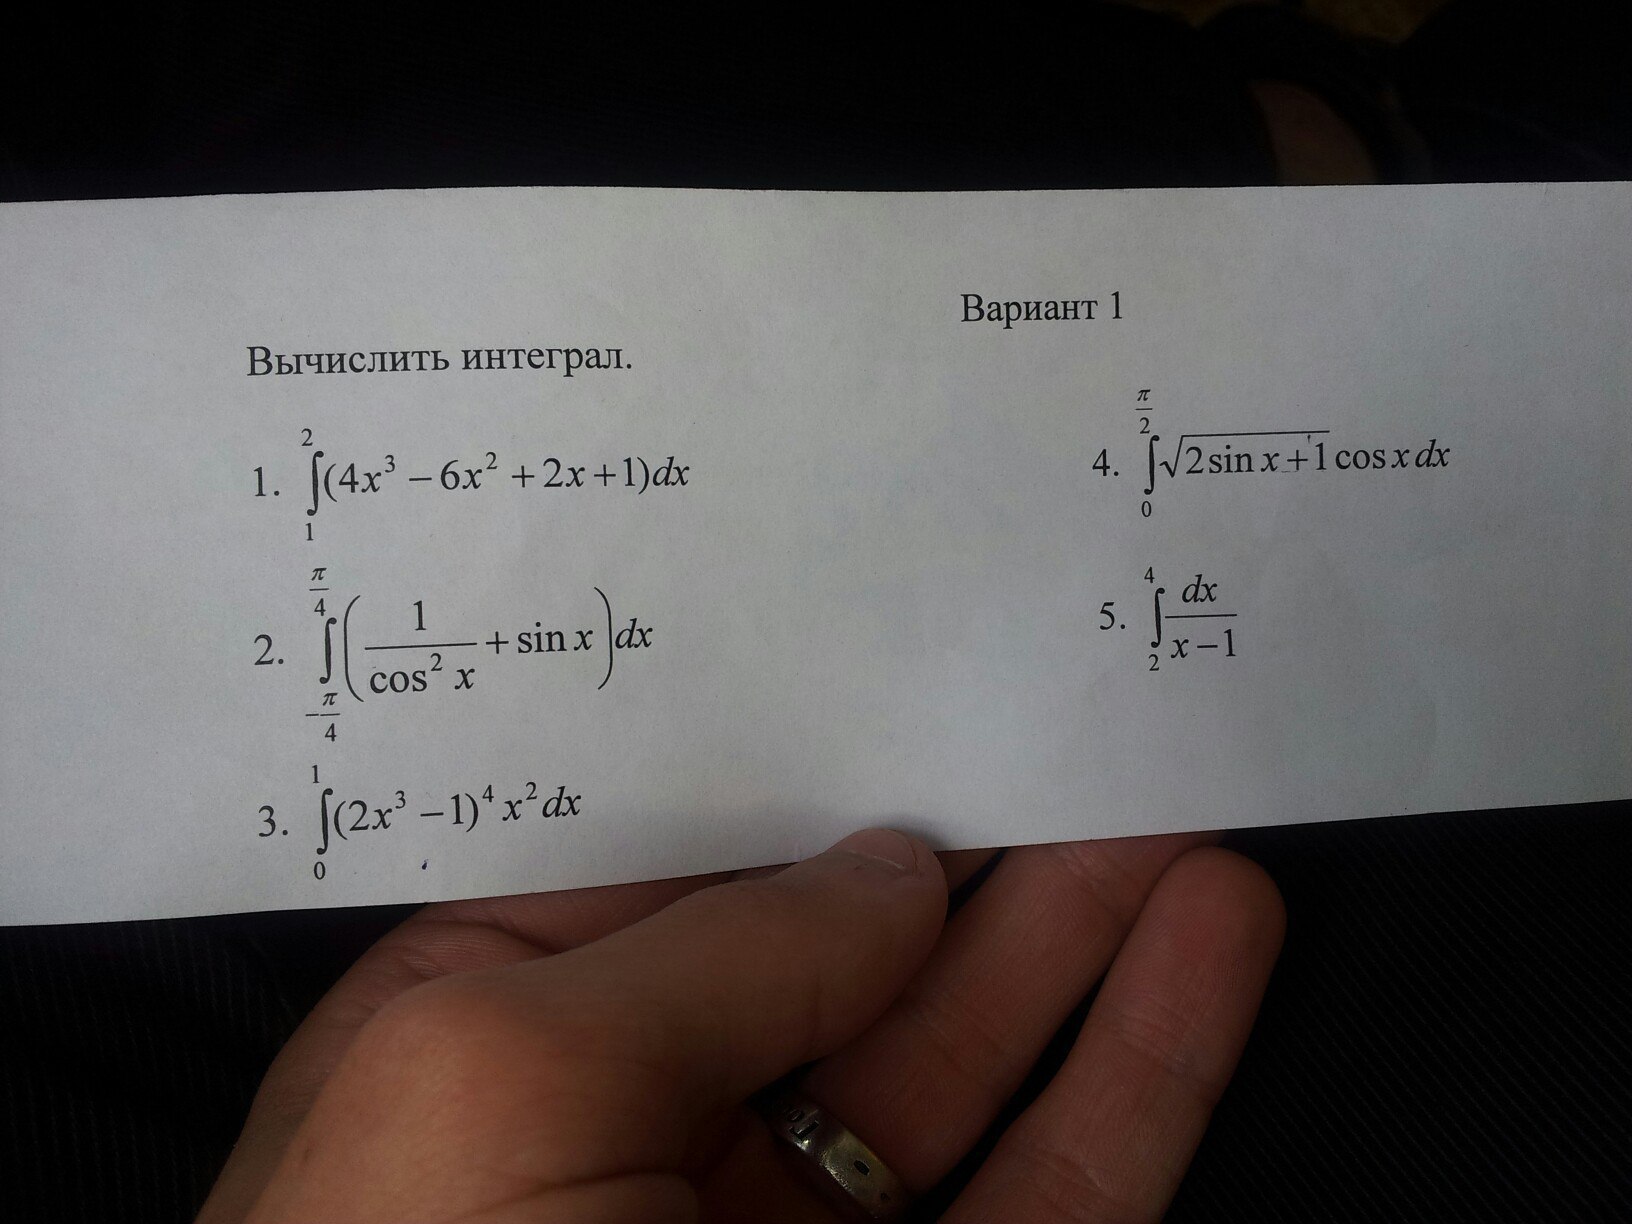 Вариант 1
Вычислить интеграл.
1. ∫₁² (4x³ − 6x² + 2x + 1)dx
2. ∫_{−π/4}^{π/4} (1/cos² x + sin x)dx
3. ∫₀¹ (2x³ − 1)⁴ x² dx
4. ∫₀^{π/2} √(2 sin x + 1) cos x dx
5. ∫₂⁴ dx/(x − 1)